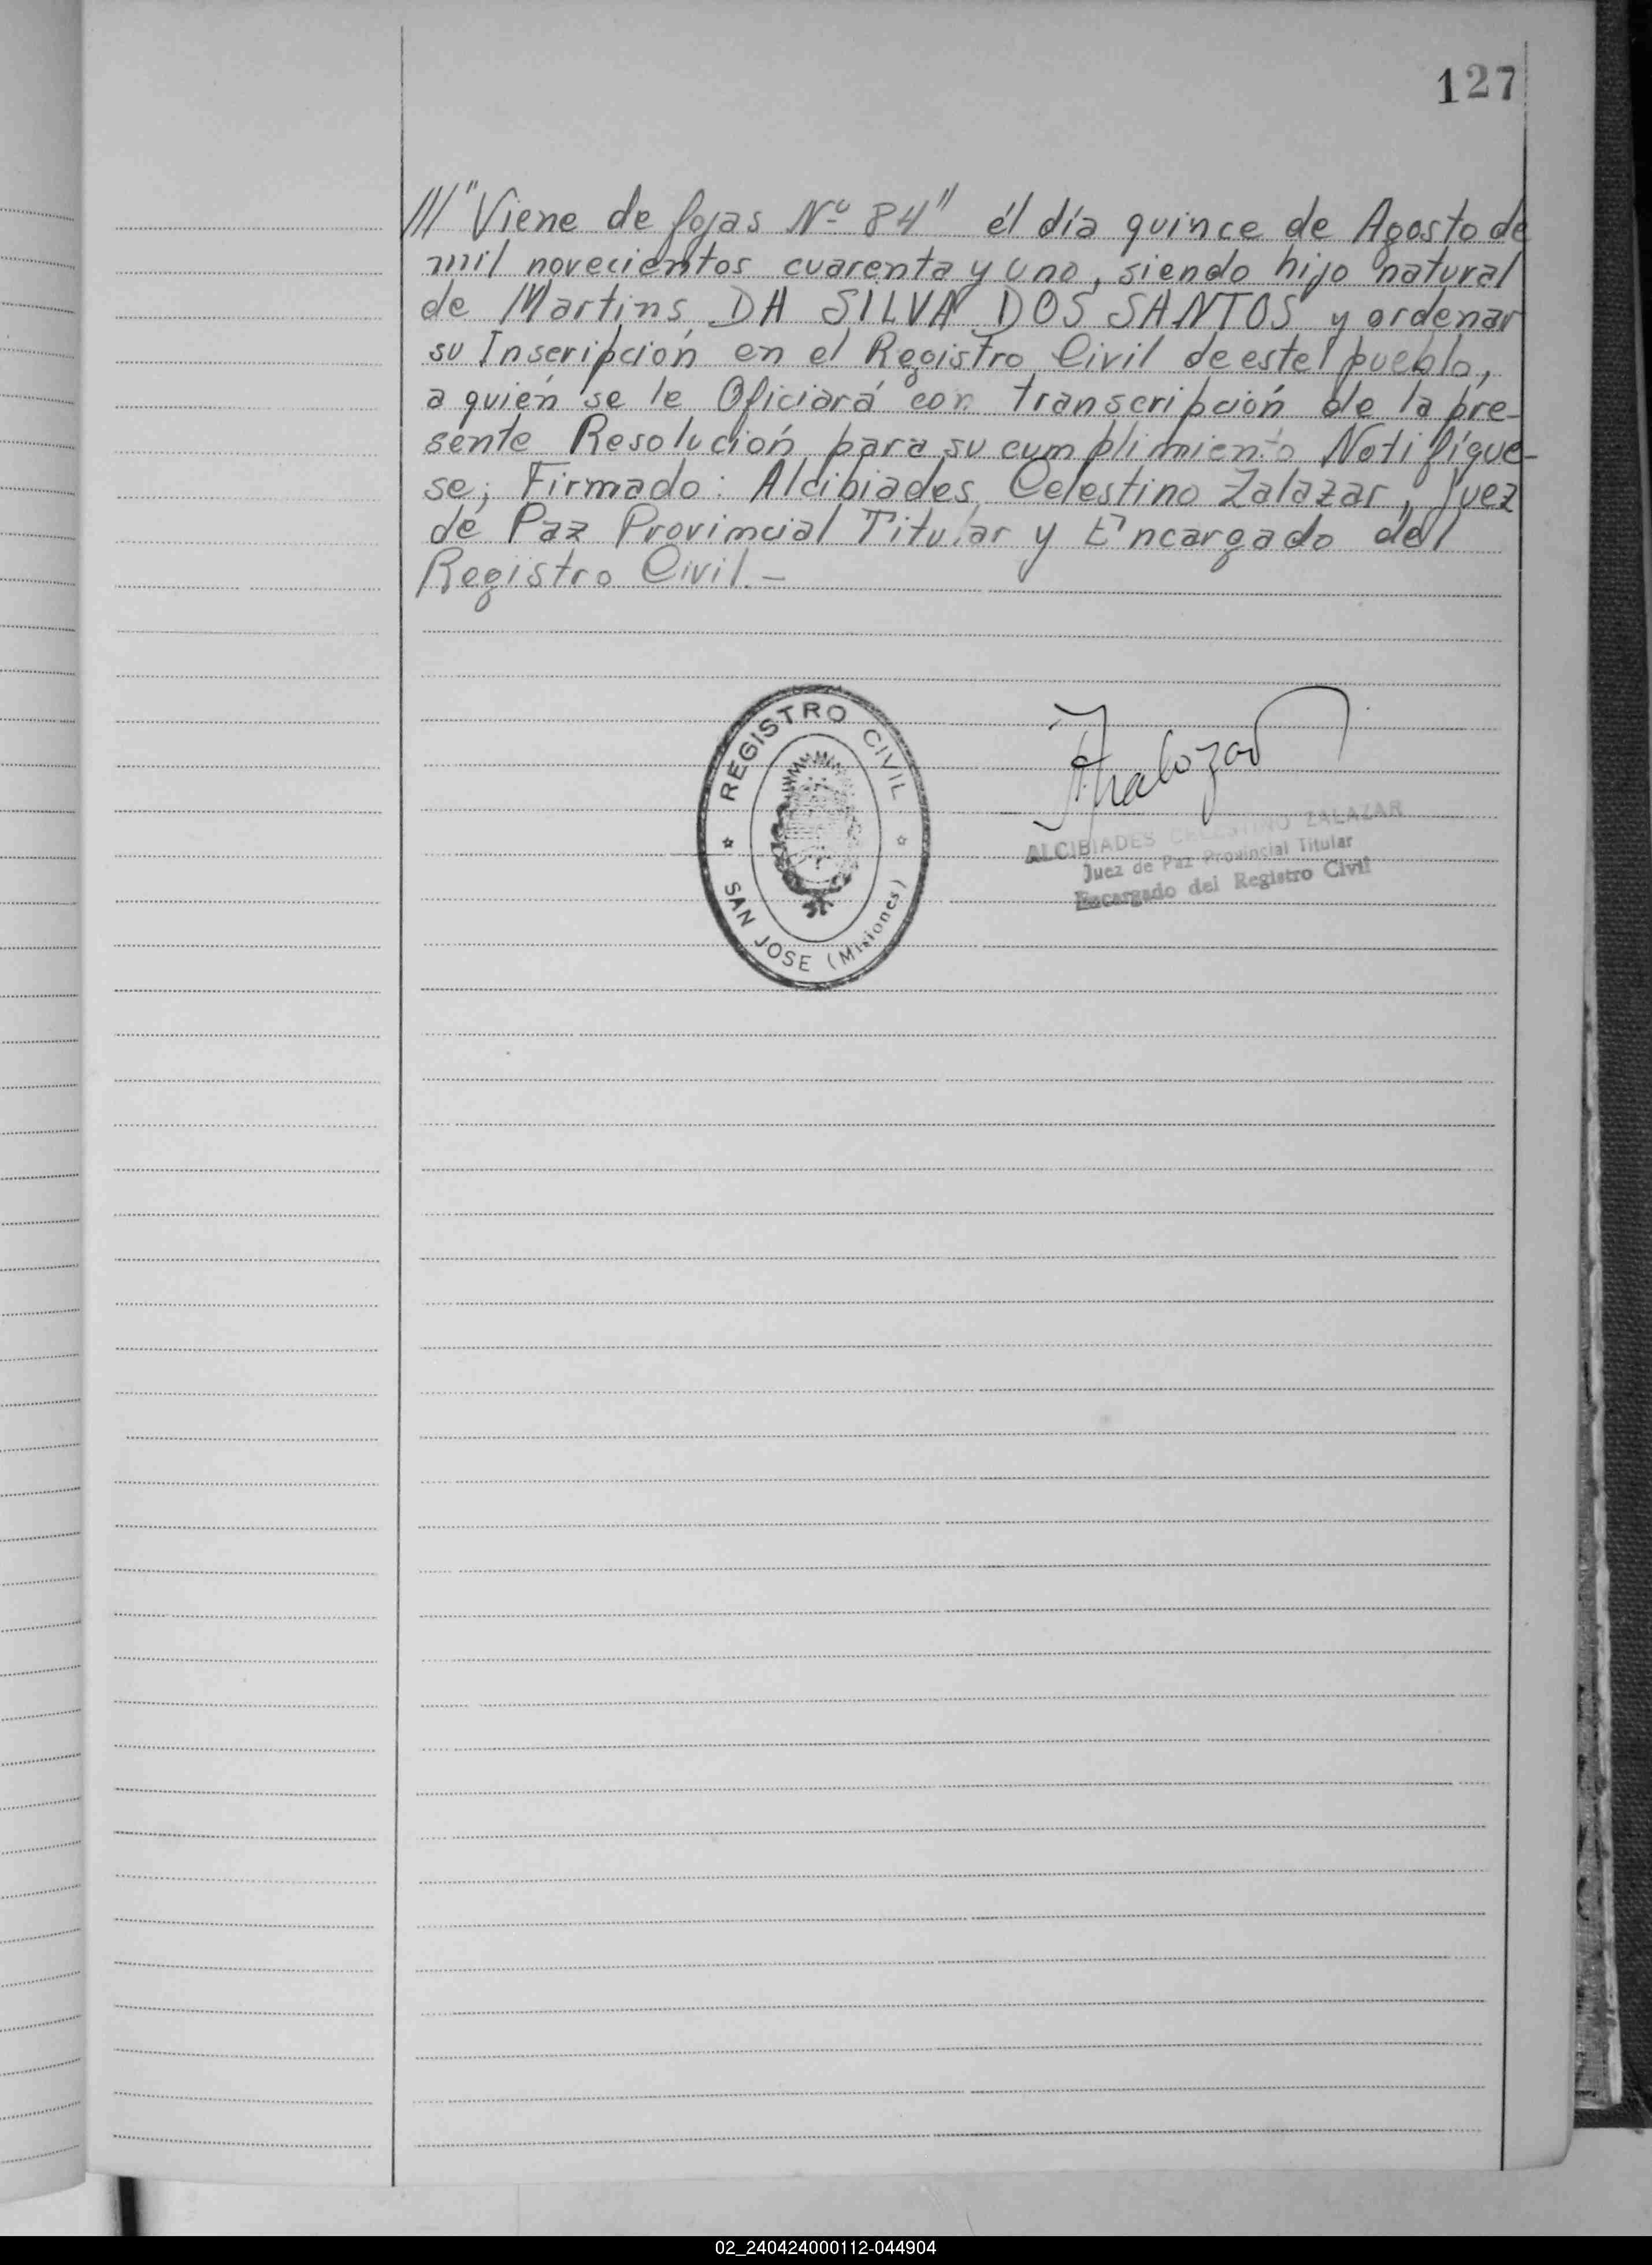 127
/// "Viene de fojas Nº 84" él día quince de Agosto de
mil novecientos cuarenta y uno, siendo hijo natural
de Martins DA SILVA DOS SANTOS y ordenar
su Inscripción en el Registro Civil de este pueblo,
a quién se le Oficiará con transcripción de la pre-
sente Resolución para su cumplimiento Notifíque-
se; Firmado: Alcibiades Celestino Zalazar, Juez
de Paz Provincial Titular y Encargado del
Registro Civil.-
REGISTRO CIVIL
SAN JOSE (Misiones)
ALCIBIADES CELESTINO ZALAZAR
Juez de Paz Provincial Titular
Encargado del Registro Civil
02_240424000112-044904